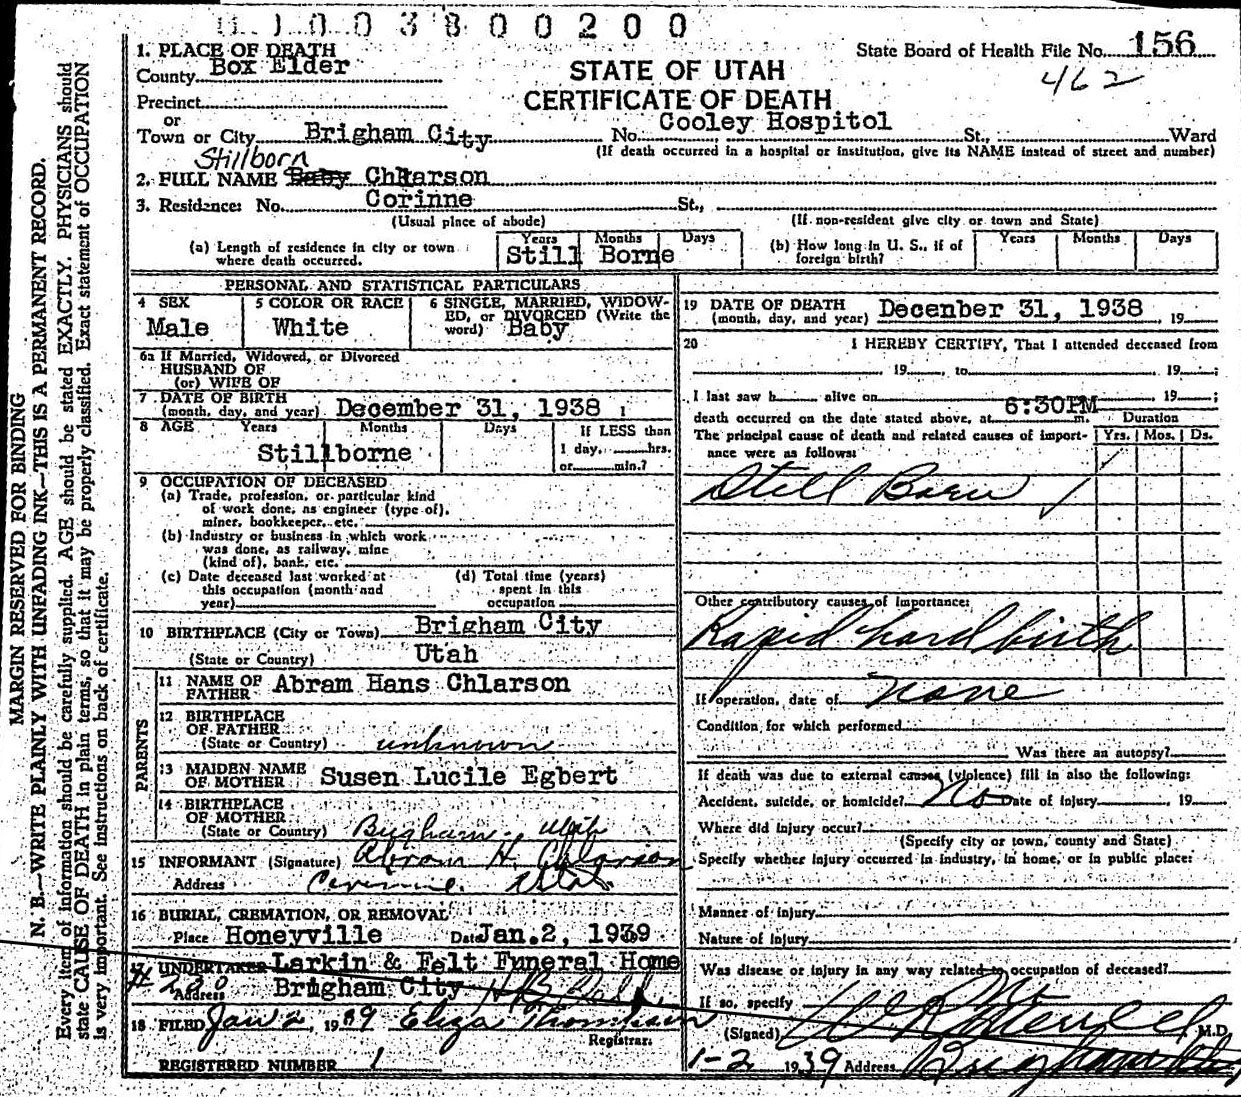 0 1 0 0 3 8 0 0 2 0 0
1. PLACE OF DEATH
County Box Elder
State Board of Health File No. 156
462
STATE OF UTAH
CERTIFICATE OF DEATH
Precinct
or
Town or City Brigham City No. Cooley Hospitol St., Ward
(If death occurred in a hospital or institution, give its NAME instead of street and number)
Stillborn
2. FULL NAME Baby Chlarson
3. Residence: No. Corinne St.,
(Usual place of abode) (If non-resident give city or town and State)
(a) Length of residence in city or town where death occurred. Years Months Days
Still Borne
(b) How long in U. S., if of foreign birth? Years Months Days
PERSONAL AND STATISTICAL PARTICULARS
4 SEX
Male
5 COLOR OR RACE
White
6 SINGLE, MARRIED, WIDOWED, or DIVORCED (Write the word) Baby
6a If Married, Widowed, or Divorced
HUSBAND OF
(or) WIFE OF
7 DATE OF BIRTH
(month, day, and year) December 31, 1938
8 AGE Years Months Days If LESS than
1 day, hrs.
or min.?
Stillborne
9 OCCUPATION OF DECEASED
(a) Trade, profession, or particular kind
of work done, as engineer (type of),
miner, bookkeeper, etc.
(b) Industry or business in which work
was done, as railway, mine
(kind of), bank, etc.
(c) Date deceased last worked at
this occupation (month and
year)
(d) Total time (years)
spent in this
occupation
10 BIRTHPLACE (City or Town) Brigham City
(State or Country) Utah
PARENTS
11 NAME OF FATHER Abram Hans Chlarson
12 BIRTHPLACE
OF FATHER
(State or Country) unknown
13 MAIDEN NAME
OF MOTHER Susen Lucile Egbert
14 BIRTHPLACE
OF MOTHER
(State or Country) Brigham, Utah
15 INFORMANT (Signature) Abram H. Chlarson
Address Corinne, Utah
16 BURIAL, CREMATION, OR REMOVAL
Place Honeyville Date Jan. 2, 1939
17 UNDERTAKER Larkin & Felt Funeral Home
Address Brigham City
18 FILED Jan 2, 1939 Eliza Thomssen
Registrar.
REGISTERED NUMBER 1
19 DATE OF DEATH
(month, day, and year) Decenber 31, 1938, 19
20 I HEREBY CERTIFY, That I attended deceased from
19, to 19;
I last saw h alive on, 19;
death occurred on the date stated above, at 6:30PM m.
The principal cause of death and related causes of importance were as follows:
Duration
Yrs. Mos. Ds.
Still Born
Other contributory causes of importance:
Rapid hard birth
If operation, date of none
Condition for which performed
Was there an autopsy?
If death was due to external causes (violence) fill in also the following:
Accident, suicide, or homicide? No Date of injury, 19
Where did injury occur?
(Specify city or town, county and State)
Specify whether injury occurred in industry, in home, or in public place:
Manner of injury
Nature of injury
Was disease or injury in any way related to occupation of deceased?
If so, specify
(Signed) M.D.
1-2 1939 Address Brigham City
MARGIN RESERVED FOR BINDING
N. B.—WRITE PLAINLY WITH UNFADING INK—THIS IS A PERMANENT RECORD.
Every item of information should be carefully supplied. AGE should be stated EXACTLY. PHYSICIANS should
state CAUSE OF DEATH in plain terms, so that it may be properly classified. Exact statement of OCCUPATION
is very important. See instructions on back of certificate.